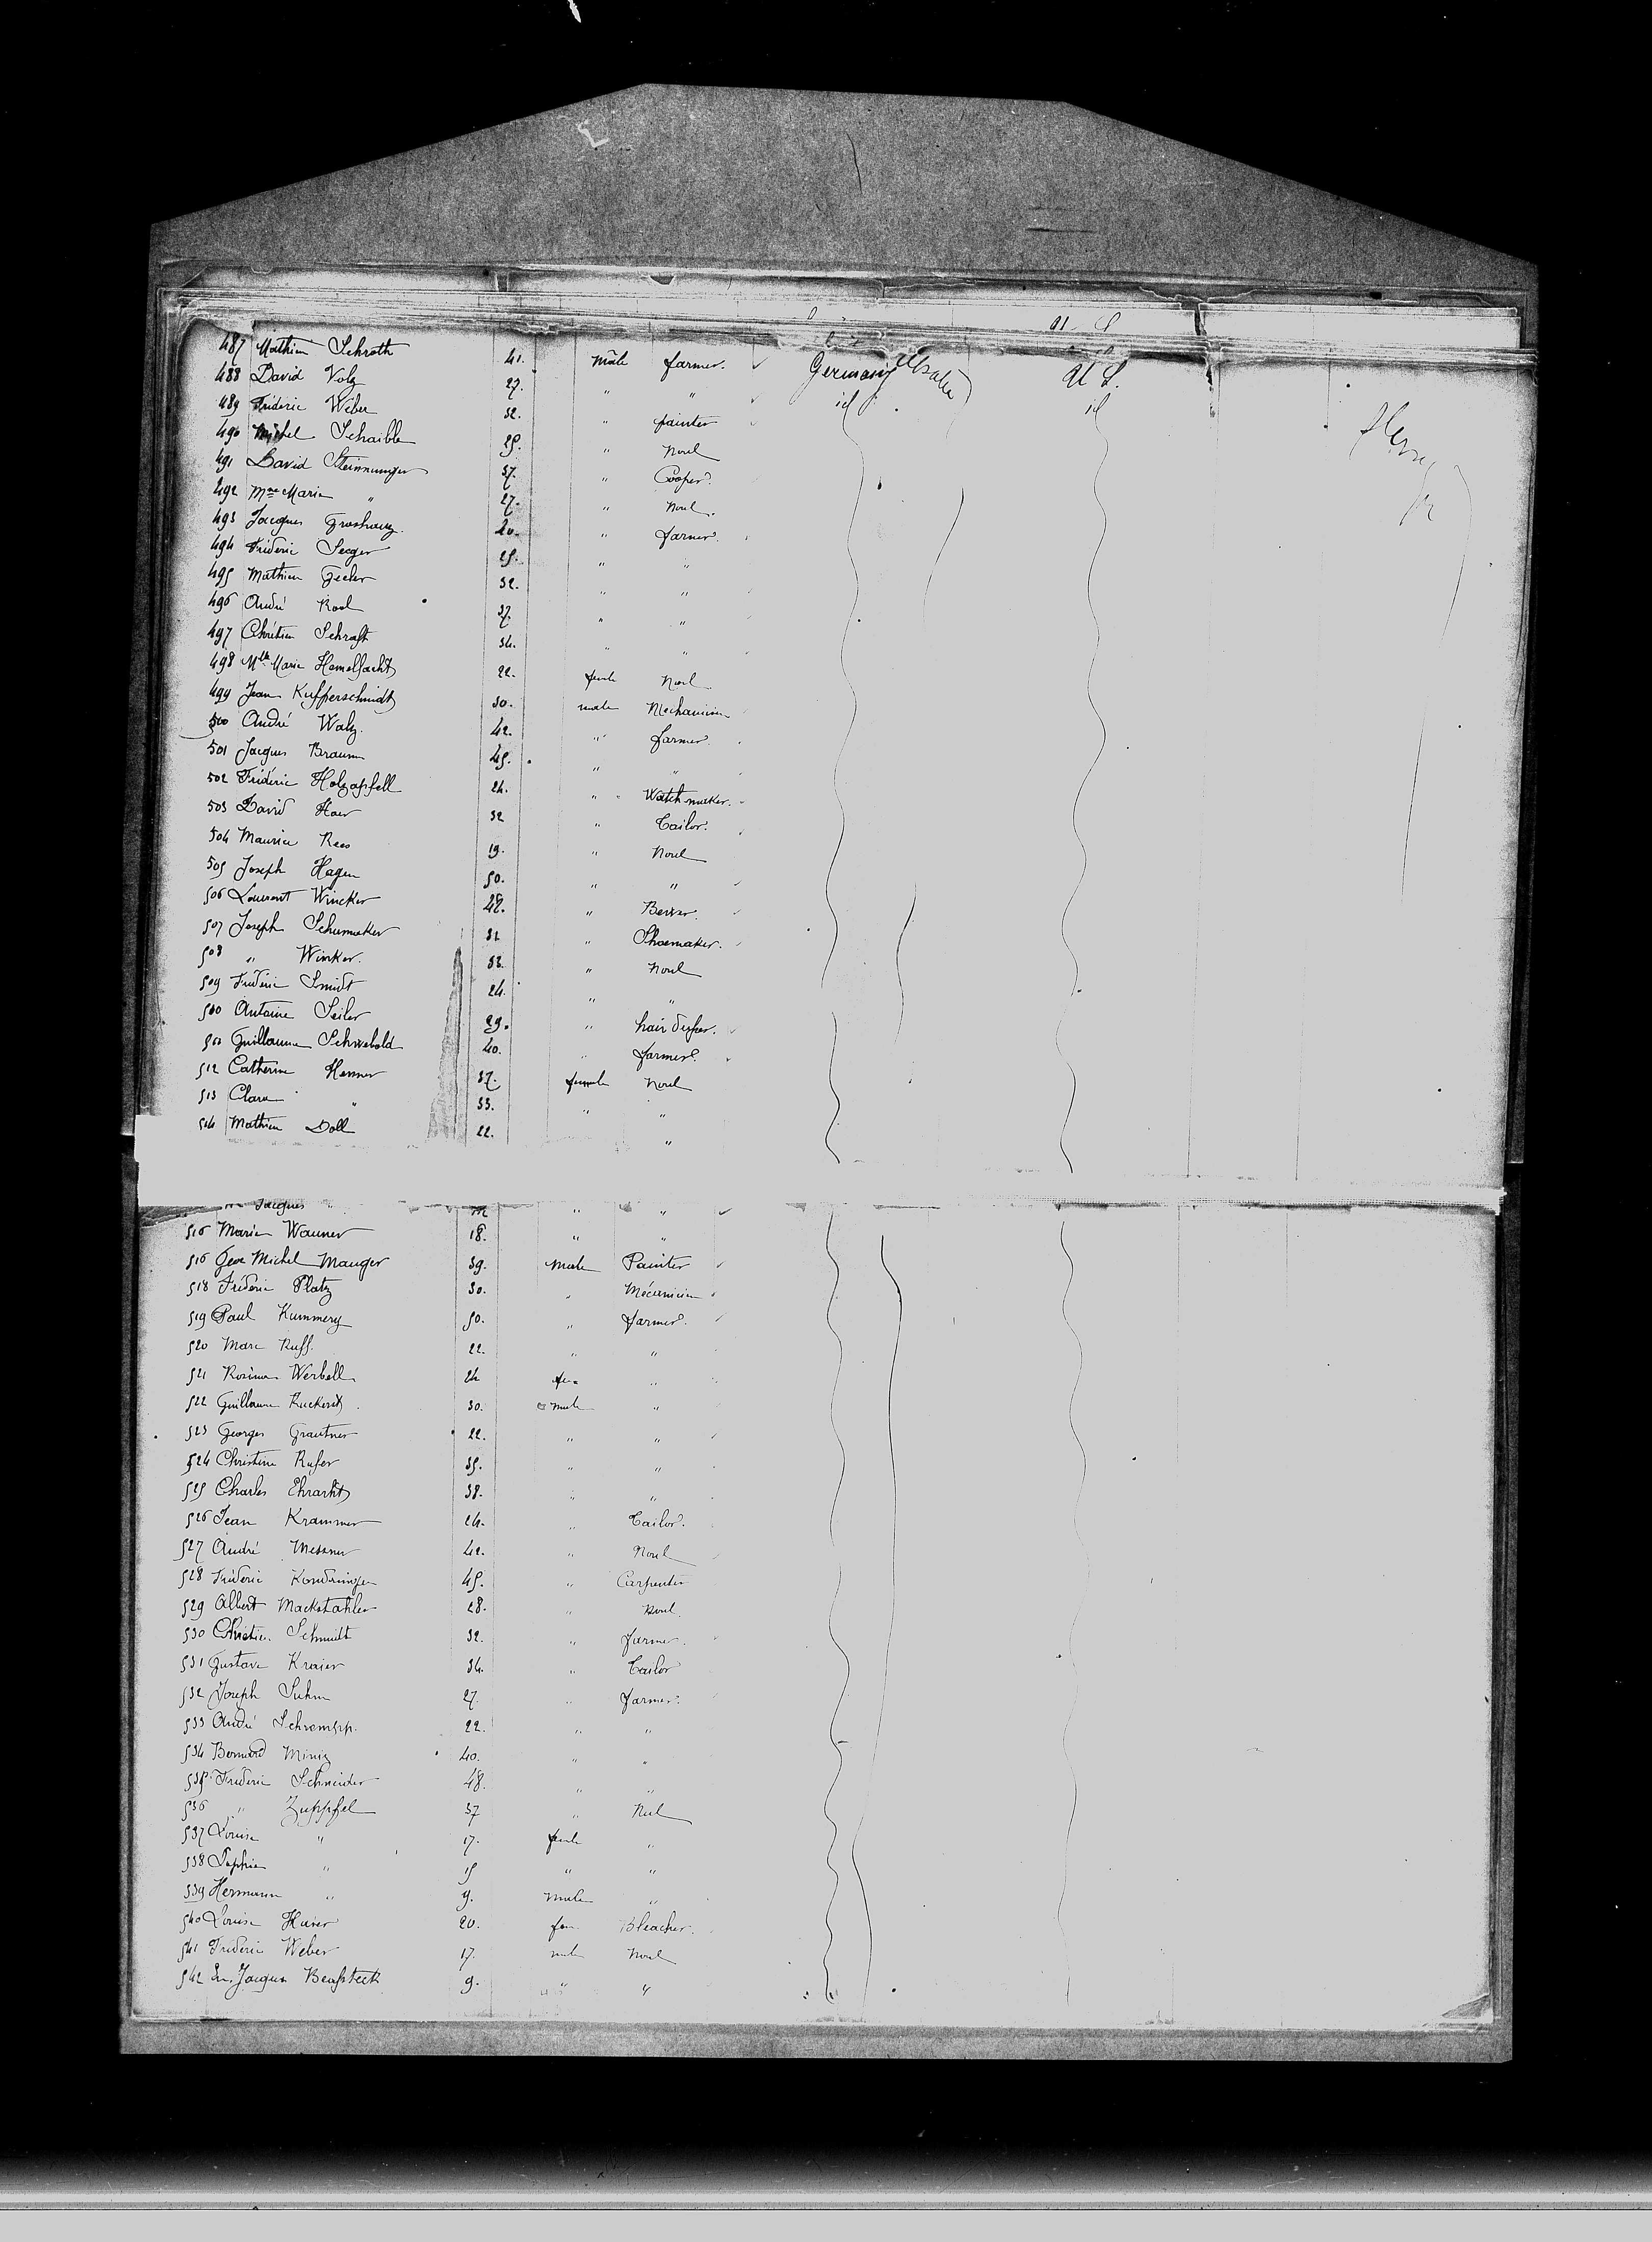 487 Mathieu Schroth 41. male farmer. Germany (Alsatia) U S.
488 David Volz 27. " " id id
489 Frideric Weber 32. " painter
490 Michel Schaible 25. " Noul
491 David Steinmunger 37. " Cooper.
492 Mme Marie " 27. " Noul.
493 Jacques Groshanz 20. " farmer.
494 Frideric Seeger 25. " "
495 Mathieu Zecher 32. " "
496 André Rool 37. " "
497 Chrétien Schraft 34. " "
498 Mlle Marie Hemelfacht 22. femle Noul
499 Jean Kufferschmidt 30. male Mechanicien
500 André Walz. 42. " farmer.
501 Jacques Braunn 45. " "
502 Frideric Holzapfell 24. " Watch maker.
503 David Haer 32 " Tailor.
504 Maurice Rees 19. " Noul
505 Joseph Hagen 50. " "
506 Laurent Wincker 42. "
507 Joseph Schumaker 32 " Shoemaker.
508 " Winker. 33. " Noul
509 Frideric Smidt 24. " "
510 Antoine Seiler 29. " hair
511 Guillaume Schwebold 40. " farmer.
512 Catherine Henner 37. female Noul
513 Clara " 33. " "
514 Mathieu Doll 22. "
Jacques " "
516 Marie Wanner 18. " "
516 Geor Michel Mauger 39. male Painter
518 Frideric Platz 30. " Mécanicien
519 Paul Kummery 50. " farmer.
520 Marc Ruff. 22. " "
521 Rosina Werbell 24 fe "
522 Guillaume Ruckerst 30. male "
523 Georges Grautner 22. " "
524 Christine Rufer 35. " "
525 Charles Ehracht 38. " "
526 Jean Krammer 24. " Tailor.
527 André Messner 42. " Noul
528 Frideric Kondringer 45. " Carpenter
529 Albert Mackstahler 28. " Noul.
530 Christian Schmidt 32. " farmer.
531 Gustave Kraier 34. " Tailor
532 Joseph Suhm 27. " farmer.
533 André Schrempp. 22. " "
534 Bernard Miniz 40. " "
535 Frideric Schneider 48. " "
536 " Zuppfel 37 " Nul
537 Louise " 17. femle "
538 Sophie " 15 " "
539 Hermann " 9. male "
540 Louise Haier 20. fem Bleacher.
541 Frideric Weber 17. male Noul
542 Jn. Jacques Benfsteck 9. " "